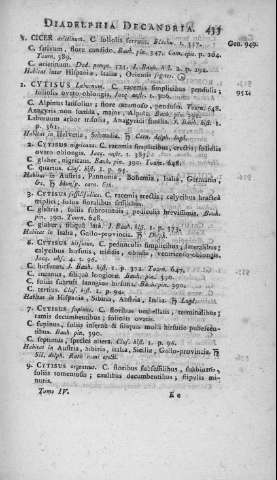 DIADELPHIA DECANDRIA. 433
1. CICER arietinum. C. foliolis serratis. Blackw. t. 557. Gen. 949.
C. sativum, flore candido. Bauh. pin. 347. Cam. epit. p. 204.
C. arietinum. Dod. pempt. J. Bauh. hist. 2. p. 292.
Habitat inter Hispaniae, Italiae, Orientis segetes.
1. CYTISUS Laburnum. C. racemis simplicibus pendulis;
foliolis ovato-oblongis. Jacq. aust. t. 306.
C. Alpinus latifolius; flore racemoso, pendulo. Tourn. 648.
Anagyris non foetida, major, Alpina. Bauh. pin. 391.
Laburnum arbor trifolia, Anagyridi similis. J. Bauh. hist. 1.
p. 361.
Habitat in Helvetia, Sabaudia.
2. CYTISUS nigricans. C. racemis simplicibus, erectis; foliolis
ovato oblongis. Jacq. austr. t. 387.
C. glaber, nigricans. Bauh. pin. 390. Tourn. 648.
C. quartus. Clus. hist. 1. p. 95.
Habitat in Austria, Pannonia, Bohemia, Italia, Germania,
3. CYTISUS sessilifolius. C. racemis erectis; calycibus bractea
triplici; foliis floralibus sessilibus.
C. glabris, foliis subrotundis; pediculis brevissimis. Bauh.
pin. 390. Tourn. 648.
C. glaber, siliqua lata. J. Bauh. hist. 1. p. 373.
Habitat in Italia, Gallo-provincia.
6. CYTISUS hirsutus. C. pedunculis simplicibus, lateralibus;
calycibus hirsutis, trifidis, obtusis, ventricoso-oblongis.
Jacq. obs. 4. t. 96.
C. hirsutus. J. Bauh. hist. 1. p. 372. Tourn. 647.
C. incanus, siliqua longiore. Bauh. pin. 390.
C. foliis subrufa lanugine hirsutis. Bauh. pin. 390.
C. tertius. Clus. hist. 1. p. 94.
Habitat in Hispania, Sibiria, Austria, Italia.
7. CYTISUS supinus. C. floribus umbellatis, terminalibus;
ramis decumbentibus; foliolis ovatis.
C. supinus, foliis infernè & siliquis molli hirsutie pubescen-
tibus. Bauh. pin. 390.
C. septimus, species altera. Clus. hist. 1. p. 96.
Habitat in Austria, Sibiria, Italia, Sicilia, Gallo-provincia.
9. CYTISUS argenteus. C. floribus subsessilibus, subbinis,
foliis tomentosis; caulibus decumbentibus; stipulis mi-
nutis.
Tome IV. E e